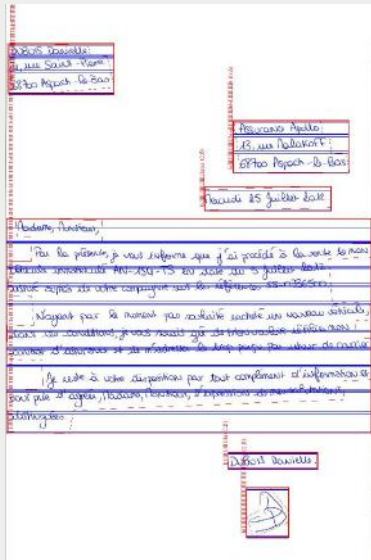 DUBOIS Danielle
4, rue Saint-Pierre
68700 Aspach-le-Bas
Assurance Apollo
13, rue Malakoff
68700 Aspach-le-Bas
Mercredi 25 juillet 2012
Madame, Monsieur,
Par la présente, je vous informe que j'ai procédé à la vente de mon
véhicule immatriculé AN-154-TS en date du 5 juillet 2012,
assuré auprès de votre compagnie sous la référence
N'ayant pas pour le moment souhaité racheter un nouveau véhicule,
dans ces conditions, je vous saurais gré de bien vouloir résilier mon
contrat d'assurance et de m'adresser le trop perçu par retour de courrier.
Je reste à votre disposition pour tout complément d'information et
vous prie d'agréer, Madame, Monsieur, l'expression de mes salutations
distinguées.
DUBOIS Danielle